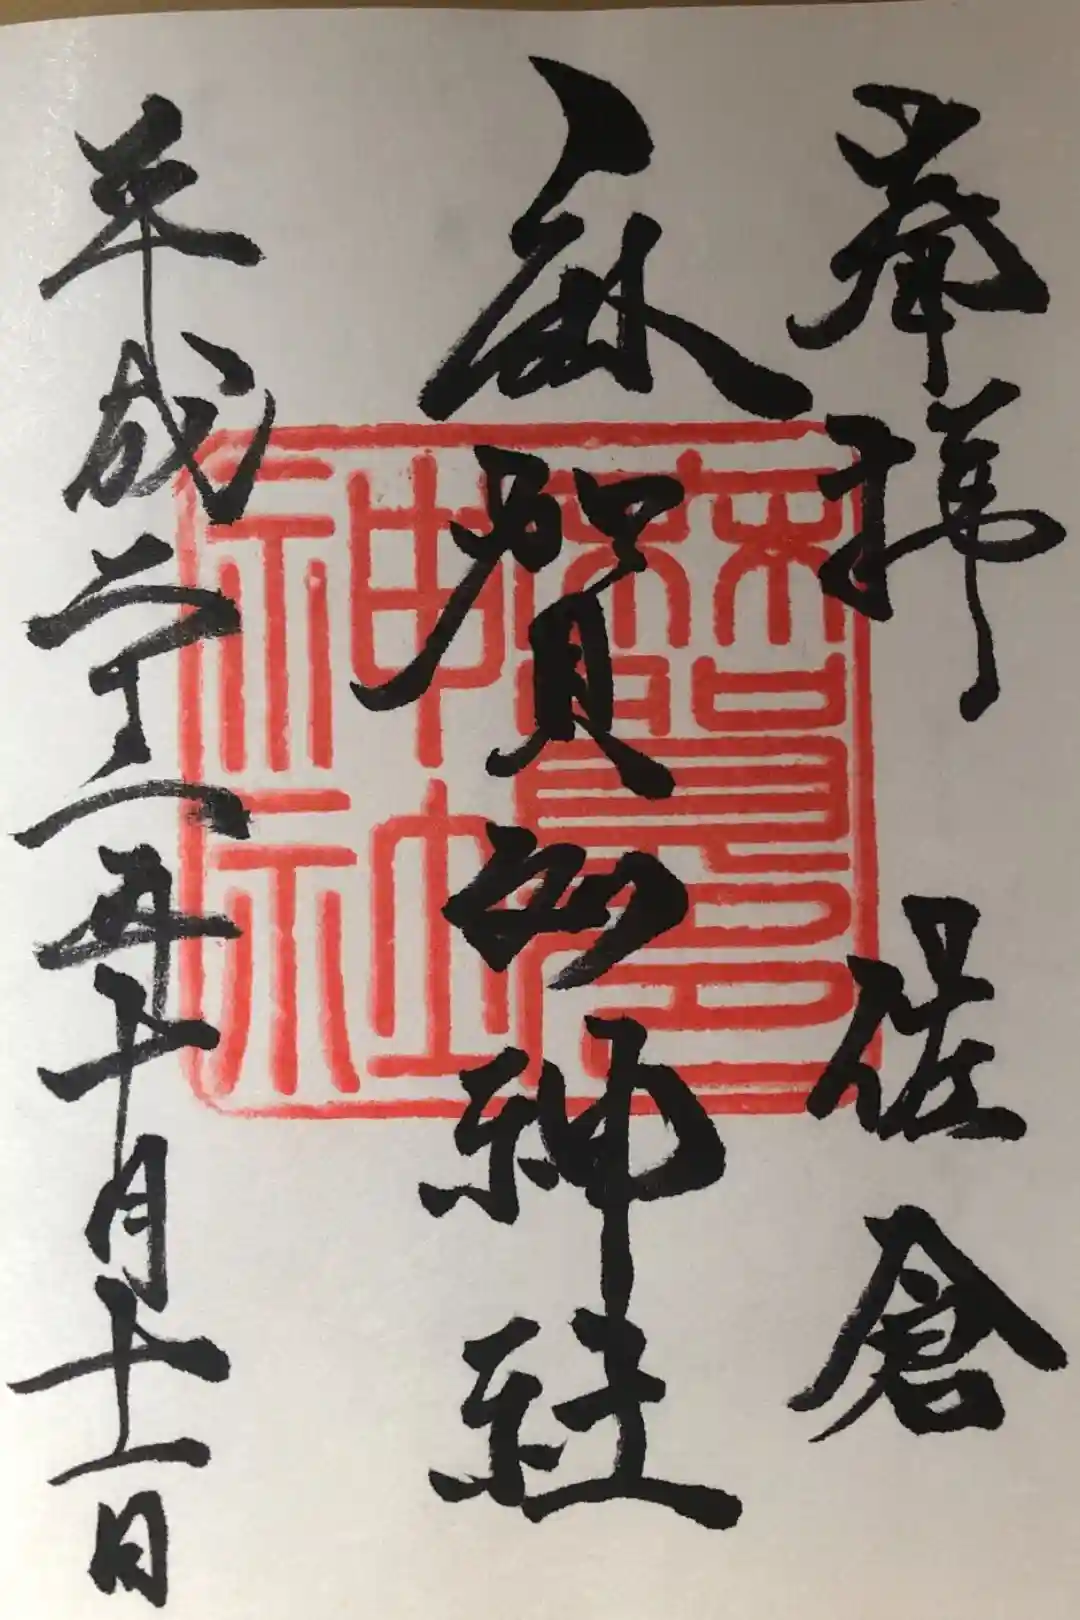 奉拝 佐倉
麻賀多神社
平成二十八年十月十一日
麻賀多
神社